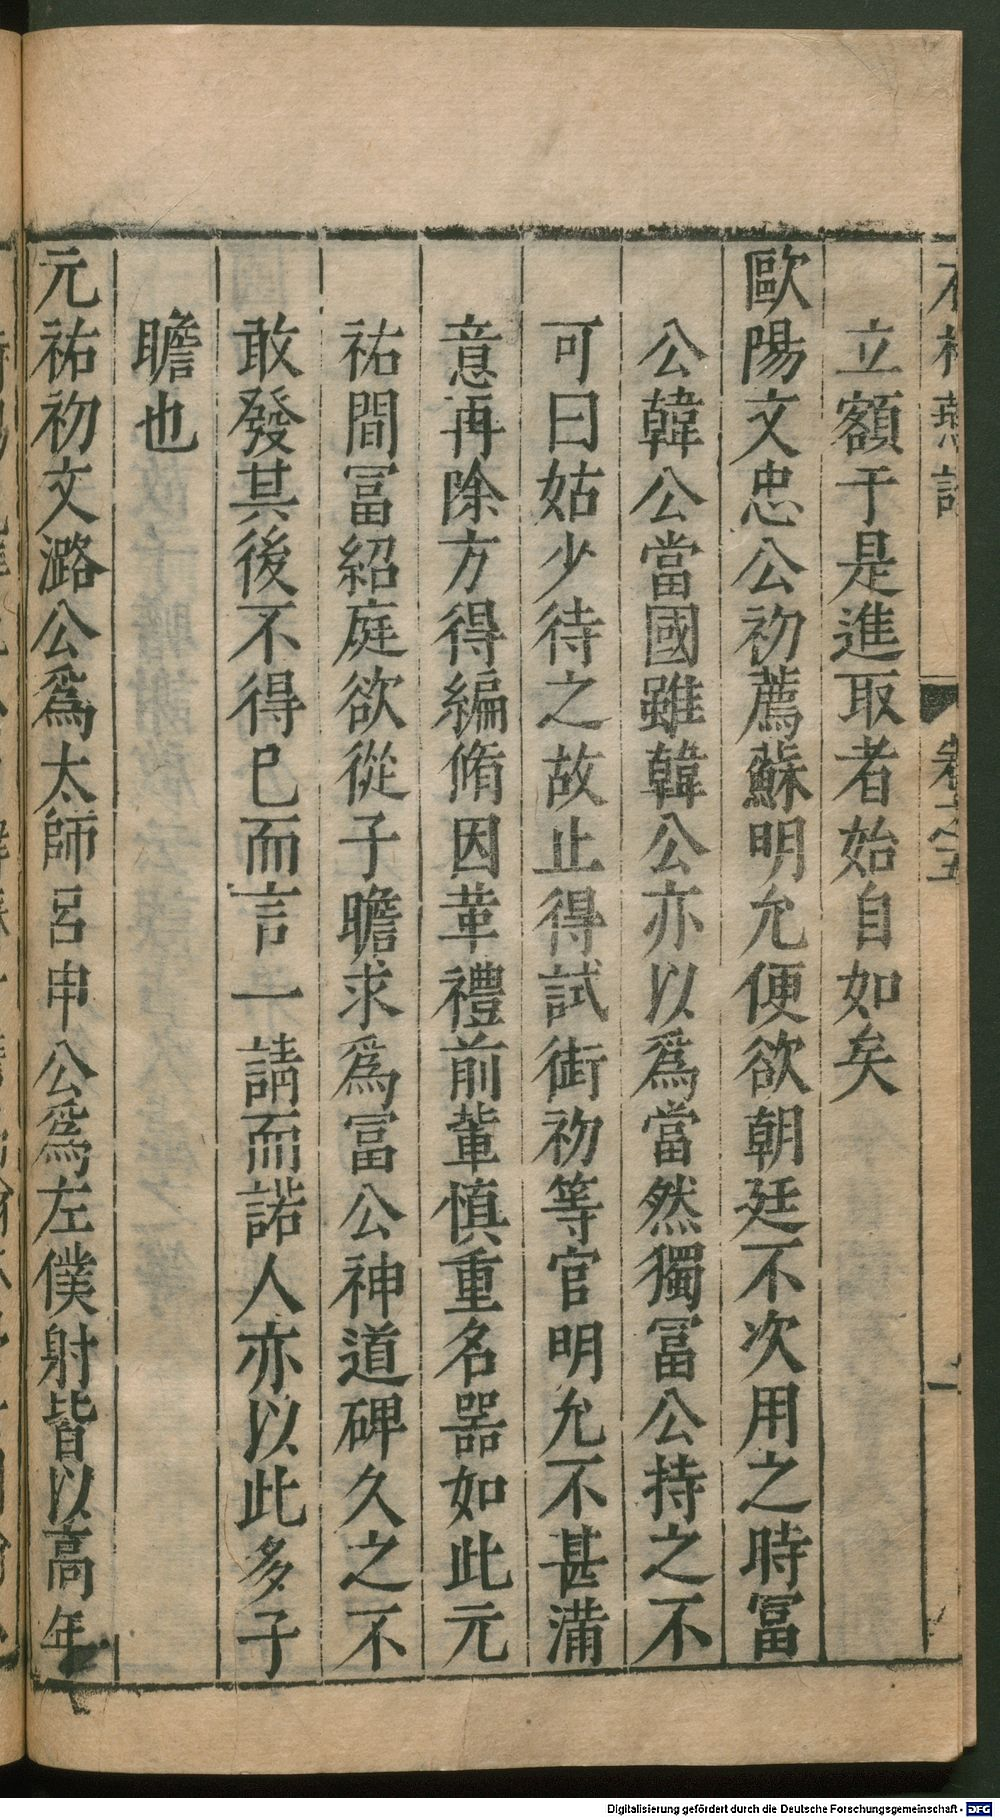 石林燕語 卷之五
立額于是進取者始自如矣
歐陽文忠公初薦蘇明允便欲朝廷不次用之時冨
公韓公當國雖韓公亦以爲當然獨冨公持之不
可曰姑少待之故止得試銜初等官明允不甚滿
意再除方得編脩因革禮前輩慎重名器如此元
祐間冨紹庭欲從子瞻求爲冨公神道碑久之不
敢發其後不得已而言一請而諾人亦以此多子
瞻也
元祐初文潞公爲太師呂申公爲左僕射皆以高年
Digitalisierung gefördert durch die Deutsche Forschungsgemeinschaft - DFG